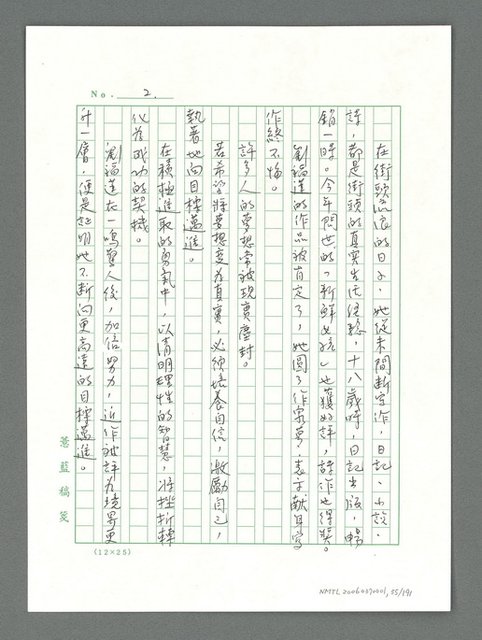 No. 2.
在街頭流浪的日子，她從未間斷寫作，日記、小說、
詩，都是街頭的真實生活經驗，十八歲時，日記出版，暢
銷一時。今年問世的「新鮮女孩」也獲好評，詩作也得獎。
劉福蓮的作品被肯定了，她圓了作家夢，表示獻身寫
作終不悔。
許多人的夢想常被現實塵封。
若希望將夢想變為真實，必須培養自信，激勵自己，
執著地向目標邁進。
在積極進取的勇氣中，以清明理性的智慧，將挫折轉
化為成功的契機。
劉福蓮在一鳴驚人後，加倍努力，近作被評為境界更
升一層，便是起明她不斷向更高遠的目標邁進。
薏藍稿箋
(12×25)
NMTL 20060370001, 35/191